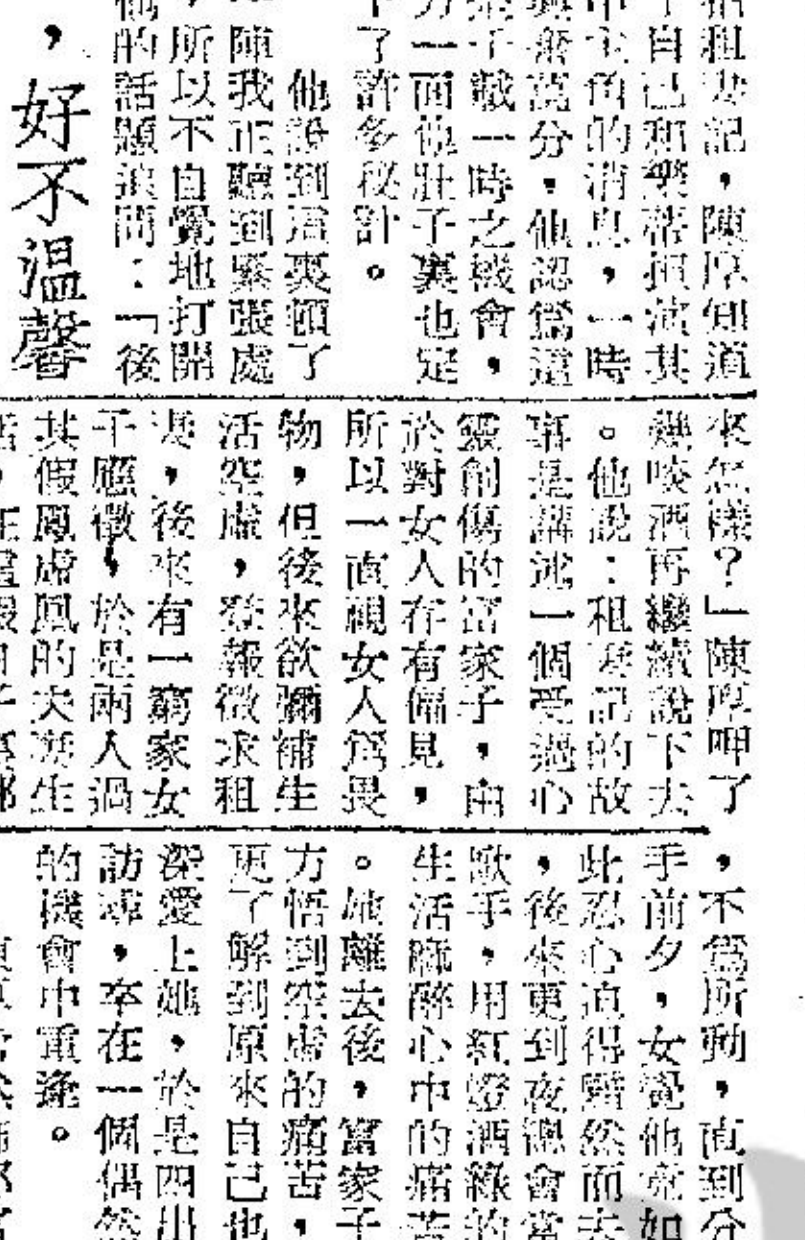 招租妻記，陳厚知道
了自己和樂蒂担演其
中主角的消息，一時
興奮萬分，他認為這
子戲一時之機會，
方一面他肚子裏也定
下了許多秘計。
他說到這裏頓了
陣我正聽到緊張處
，所以不自覺地打開
他的話題追問：「後
，好不溫馨
來怎樣？」陳厚呷了
幾啖酒再繼續說下去
。他說：租妻記的故
事是講述一個受過心
靈創傷的富家子，由
於對女人存有偏見，
所以一直視女人為畏
物，但後來欲彌補生
活空虛，登報徵求租
妻，後來有一窮家女
子應徵，於是兩人過
其假鳳虛凰的夫妻生
活，在這段日子
，不為所動，直到分
手前夕，女覺他竟如
此忍心直得黯然而去
，後來更到夜總會當
歌手，用紅燈酒綠的
生活麻醉心中的痛苦
。她離去後，富家子
方悟到空虛的痛苦，
更了解到原來自己也
深愛上她，於是四出
訪尋，卒在一個偶然
的機會中重逢。